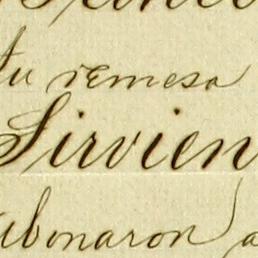 tu remesa
Sirvien
abonaron a